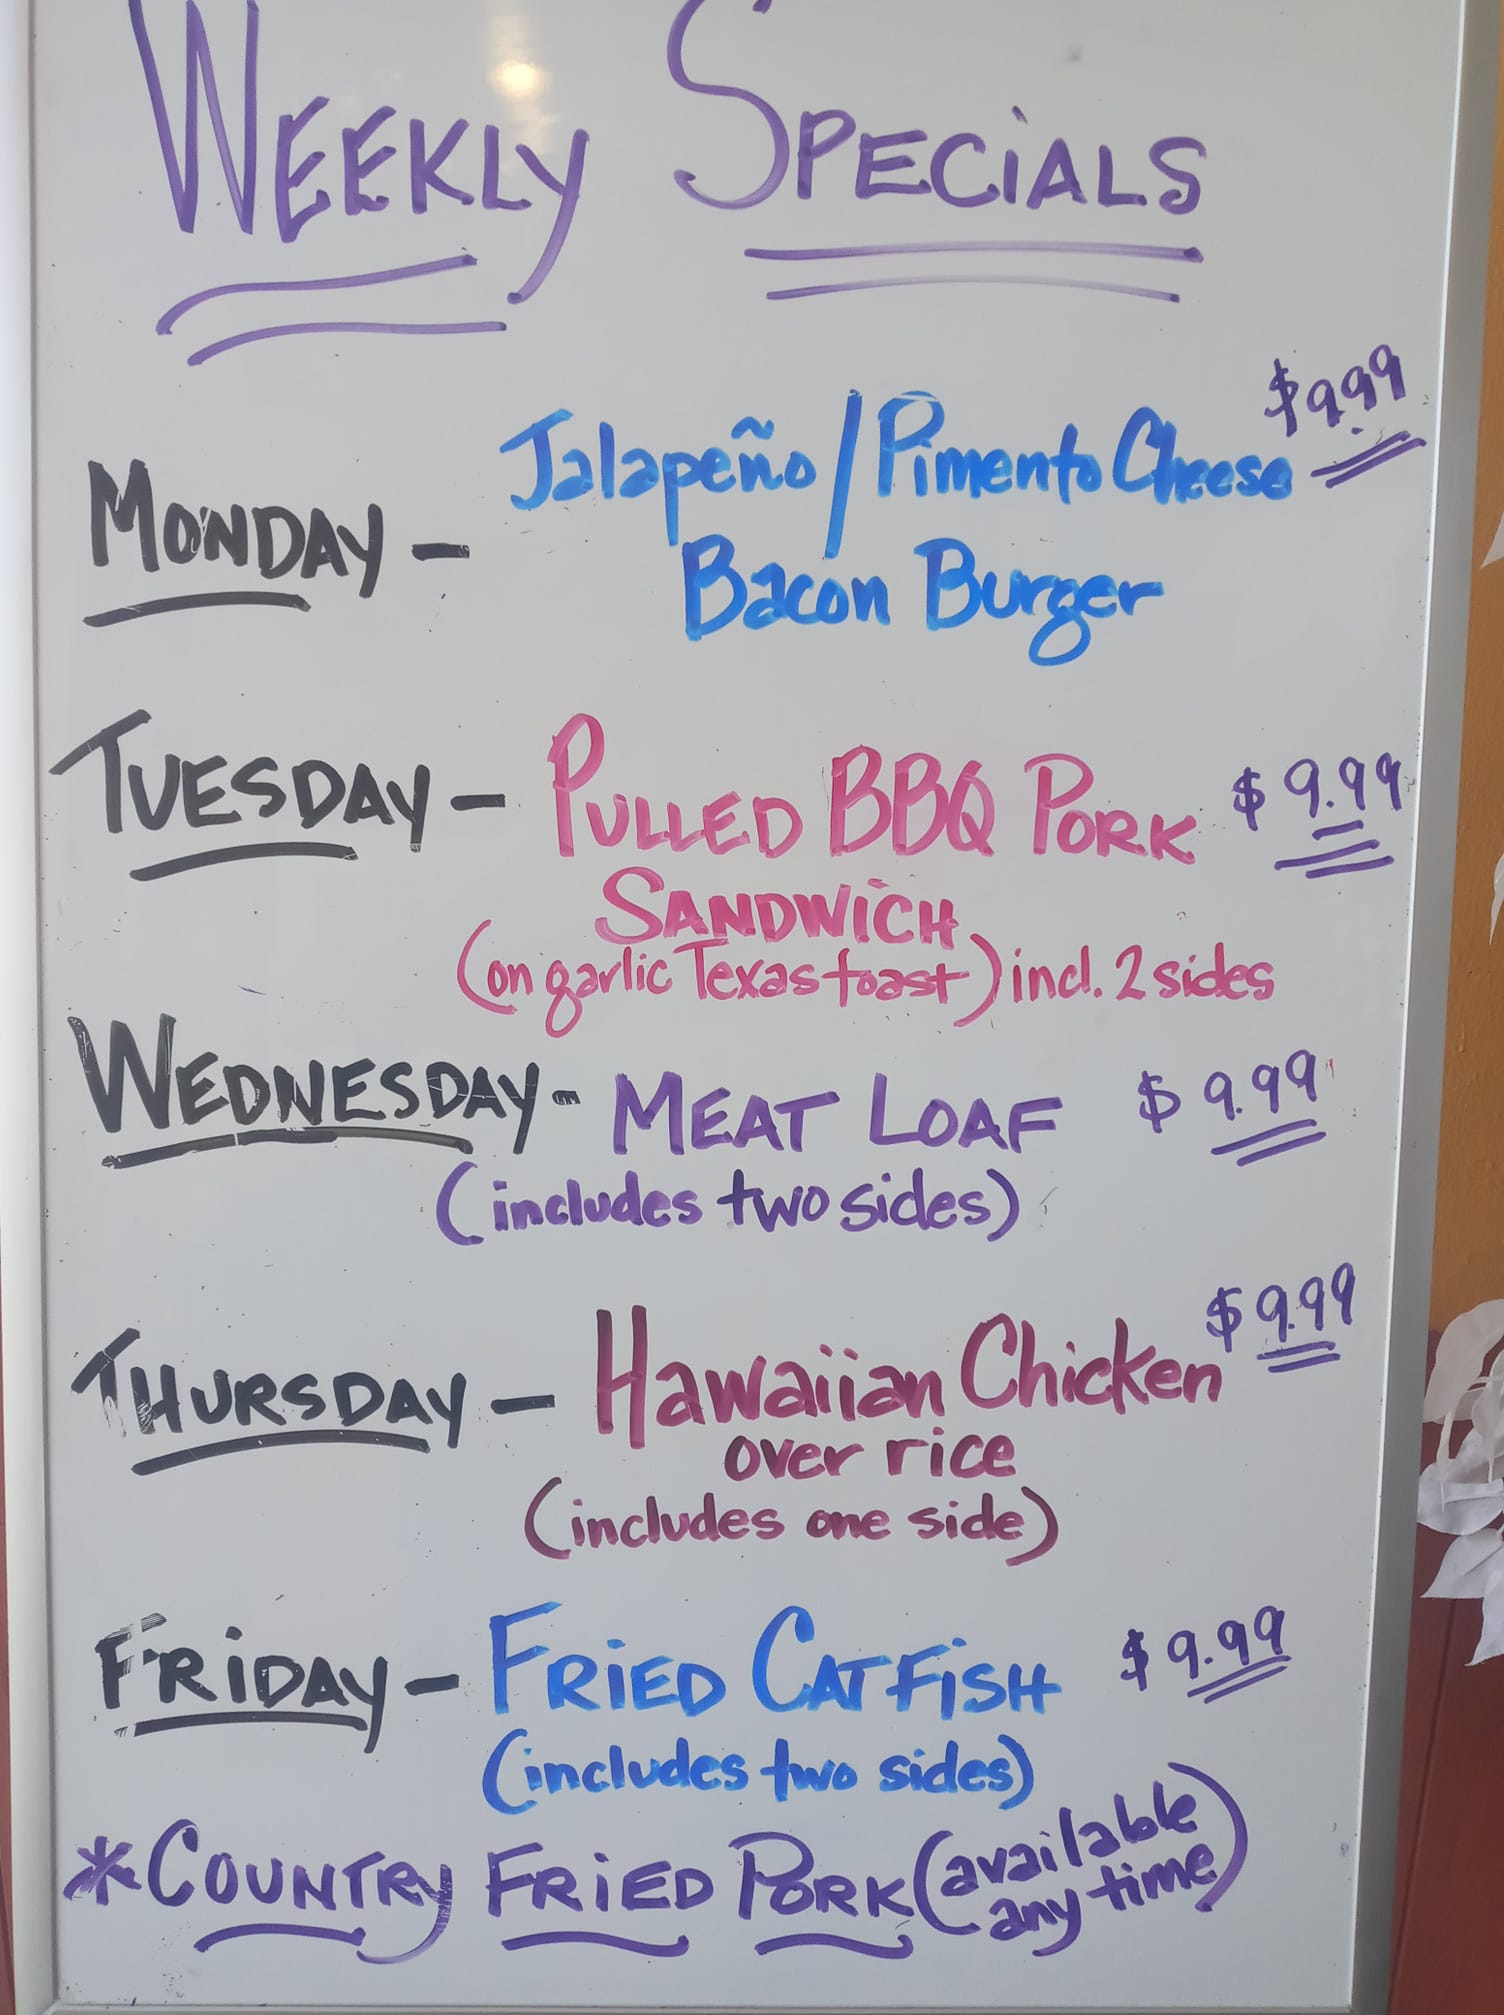 WEEKLY SPECIALS
MONDAY - Jalapeño / Pimento Cheese $9.99
Bacon Burger
TUESDAY - PULLED BBQ PORK $9.99
SANDWICH
(on garlic Texas toast) incl. 2 sides
WEDNESDAY - MEAT LOAF $9.99
(includes two sides)
THURSDAY - Hawaiian Chicken $9.99
over rice
(includes one side)
FRIDAY - FRIED CATFISH $9.99
(includes two sides)
*COUNTRY FRIED PORK (available
any time)